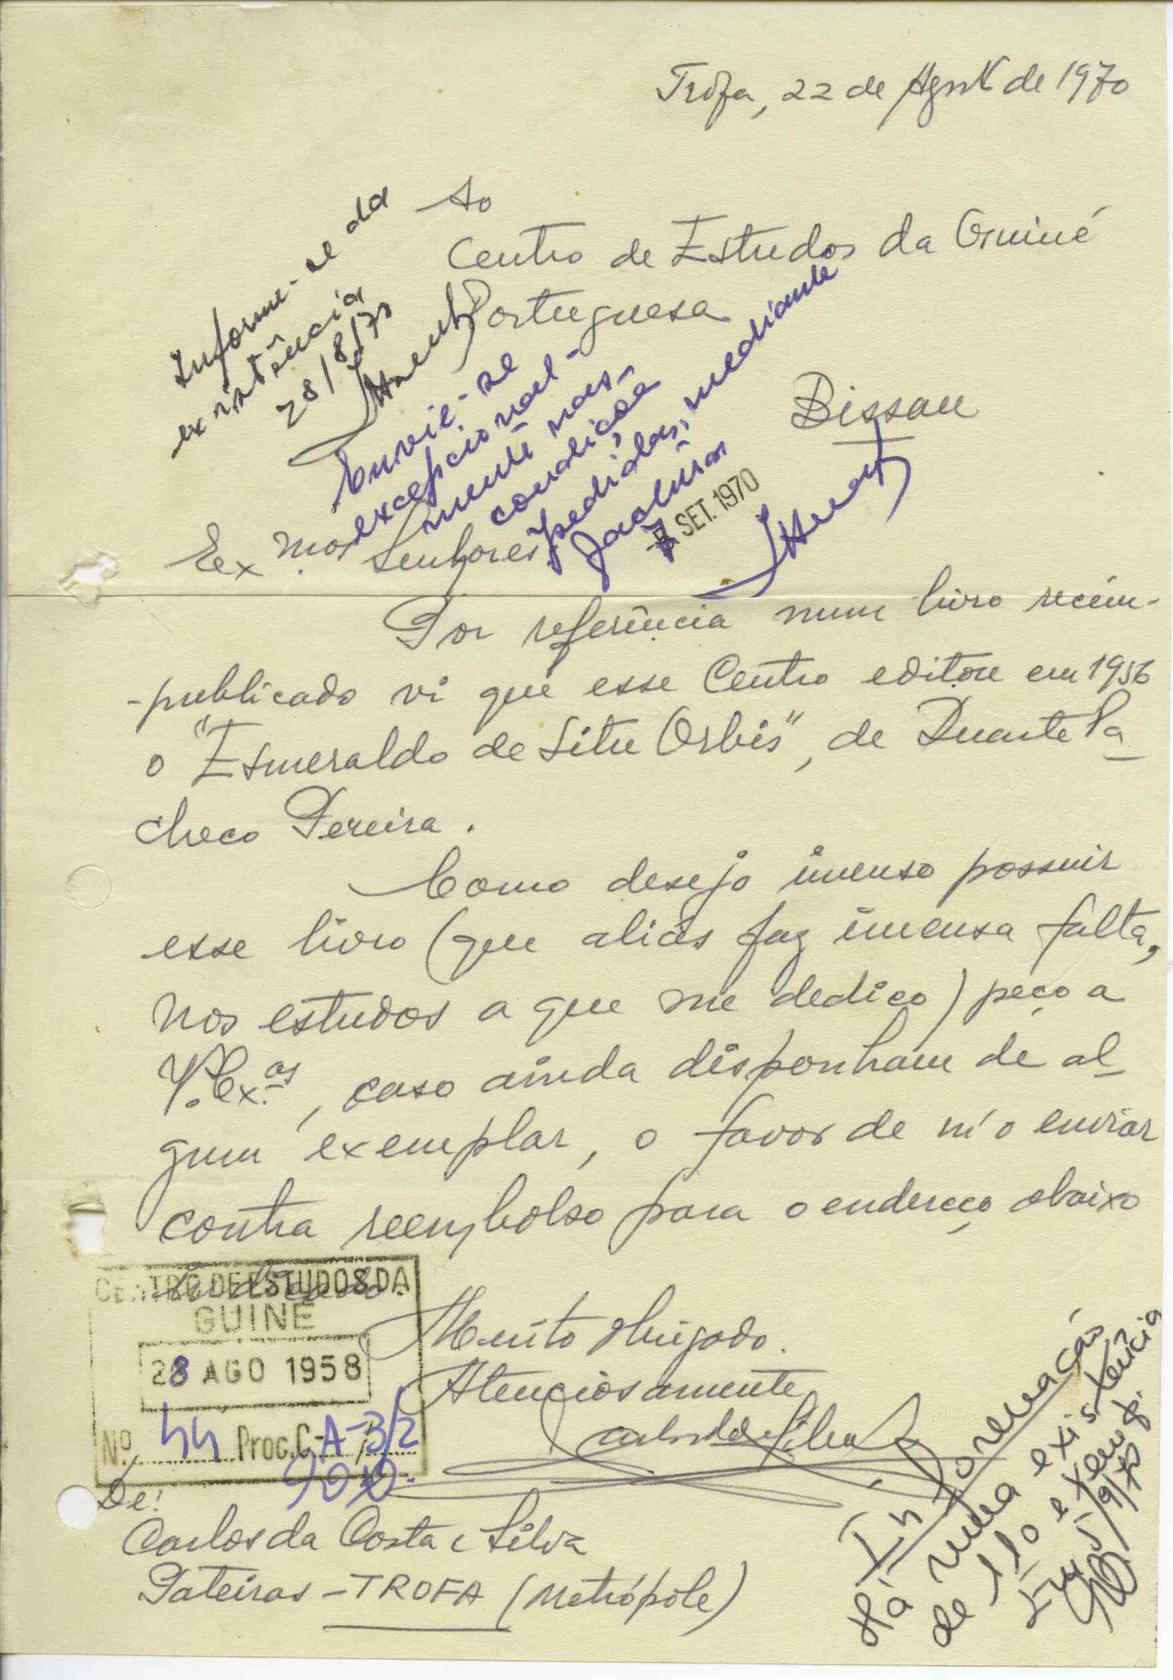 Trofa, 22 de Agosto de 1970
Ao
Centro de Estudos da Guiné
Portuguesa
Bissau
Informe-se da
existência
28/8/70
Envie-se
excepcional-
mente nas
condições
pedidas, mediante
factura
7 SET. 1970
Ex.mos Senhores:
Por referência num livro recém-
-publicado vi que esse Centro editou em 1956
o "Esmeraldo de Situ Orbis", de Duarte Pa
checo Pereira.
Como desejo imenso possuir
esse livro (que aliás faz imensa falta,
nos estudos a que me dedico) peço a
V. Ex.as, caso ainda disponham de al
gum exemplar, o favor de m'o enviar
contra reembolso para o endereço abaixo
indicado.
Muito obrigado.
Atenciosamente
Carlos da C Silva
CENTRO DE ESTUDOS DA
GUINÉ
28 AGO 1958
Nº 44 Proc. C-A-3/2
De:
Carlos da Costa e Silva
Pateiras - TROFA (Metrópole)
Informação
Há uma existência
de 110 exemp.
Em 5/9/70